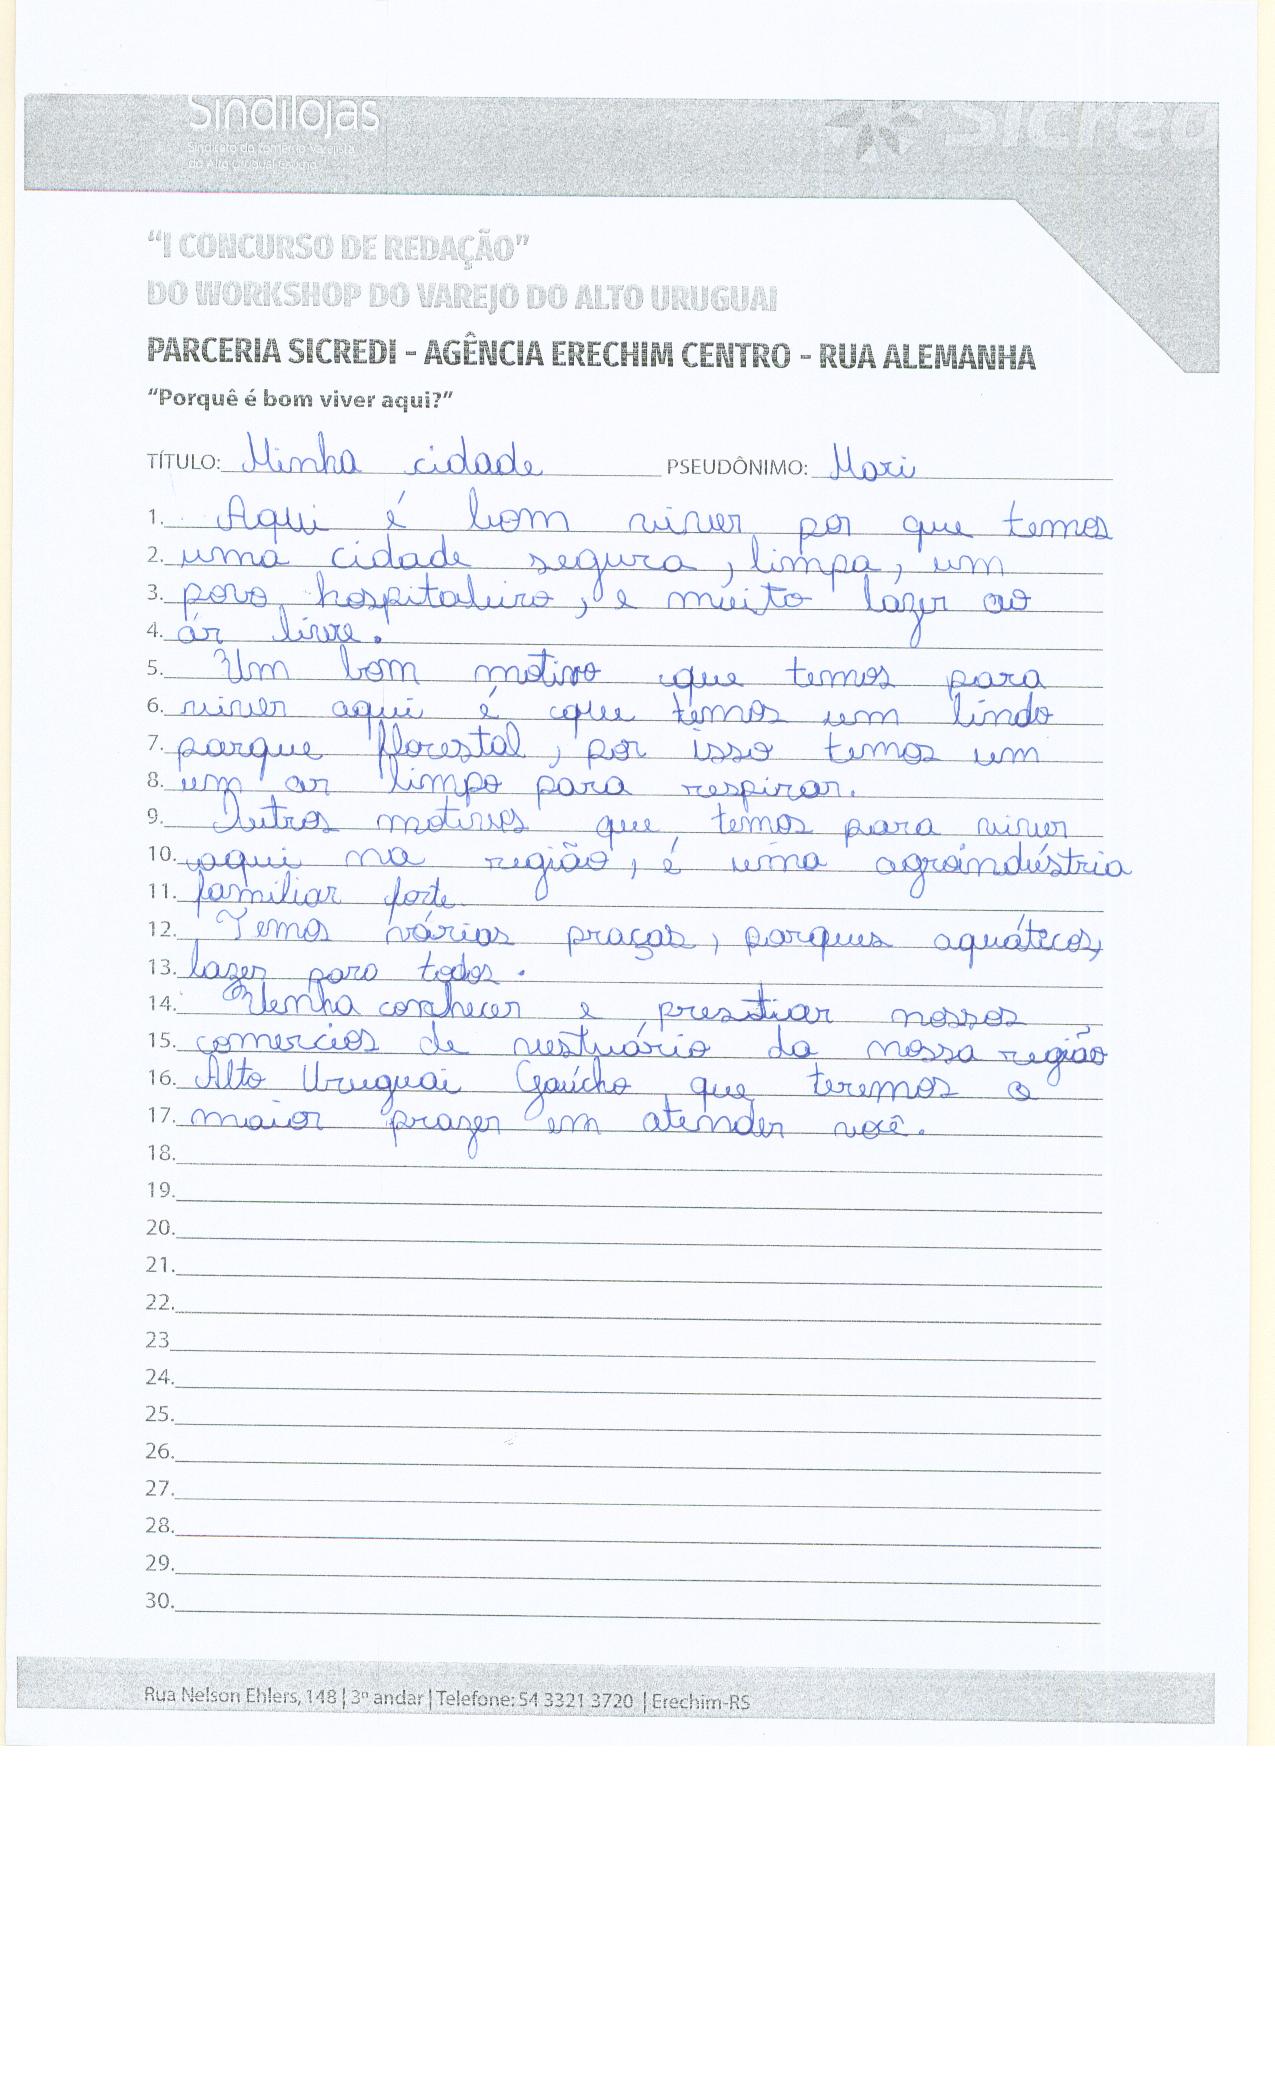 Sindilojas
Sindicato do Comércio Varejista
do Alto Uruguai Gaúcho
Sicred
“I CONCURSO DE REDAÇÃO”
DO WORKSHOP DO VAREJO DO ALTO URUGUAI
PARCERIA SICREDI - AGÊNCIA ERECHIM CENTRO - RUA ALEMANHA
“Porquê é bom viver aqui?”
TÍTULO: Minha cidade PSEUDÔNIMO: Mari
1. Aqui é bom viver por que temos
2. uma cidade segura, limpa, um
3. povo hospitaleiro, e muito lazer ao
4. ár livre.
5. Um bom motivo que temos para
6. viver aqui é que temos um lindo
7. parque florestal, por isso temos um
8. um ar limpo para respirar.
9. Outros motivos que temos para viver
10. aqui na região, é uma agroindústria
11. familiar forte.
12. Temos várias praças, parques aquátecos,
13. lazer para todos.
14. Venha conhecer e prestiar nossos
15. comercios de vestuário da nossa região
16. Alto Uruguai Gaúcho que teremos o
17. maior prazer em atender você.
18.
19.
20.
21.
22.
23
24.
25.
26.
27.
28.
29.
30.
Rua Nelson Ehlers, 148 | 3º andar | Telefone: 54 3321 3720 | Erechim-RS